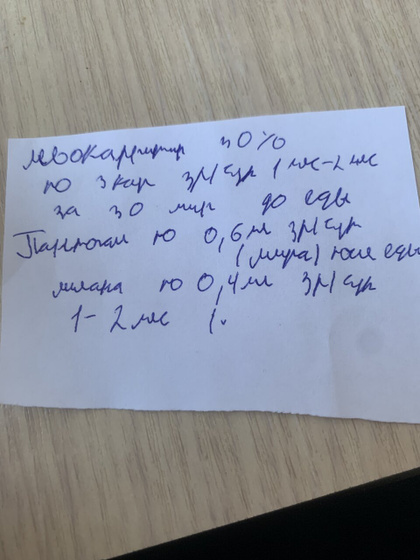 левокарнитин 30%
по 3 кап 3р/сут 1 мес-2 мес
за 30 мин до еды
Пантогам по 0,6 мл 3р/сут
после еды
по 0,4 мл 3р/сут
1-2 мес